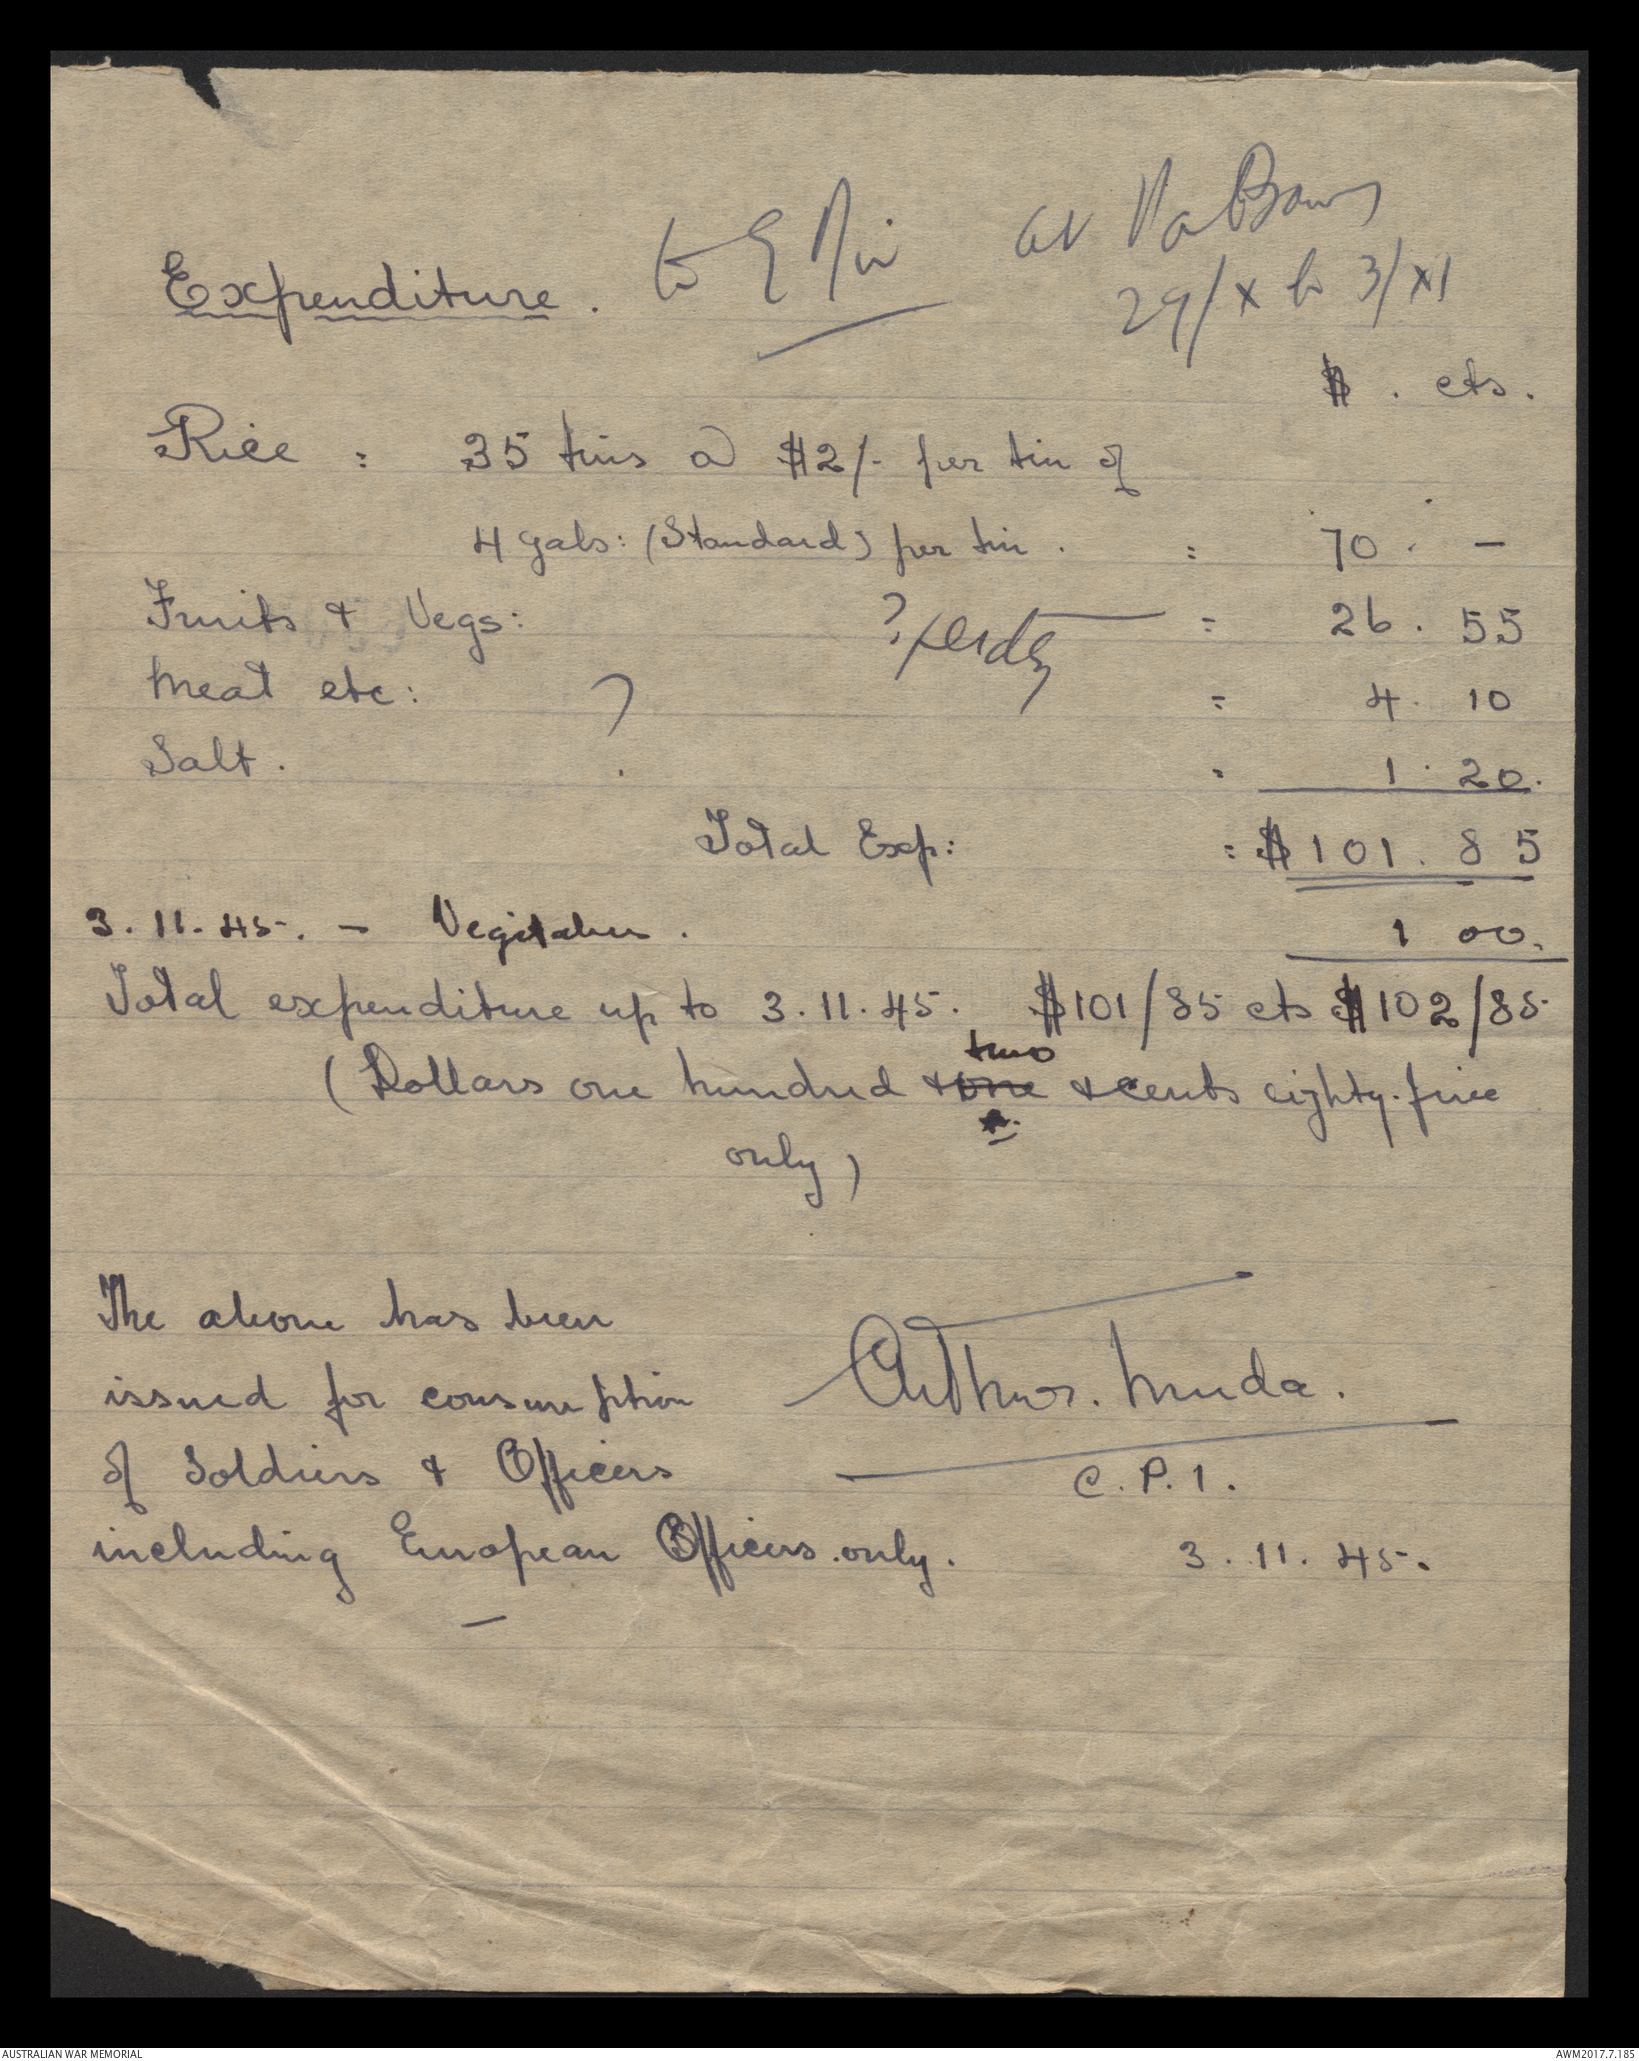 Expenditure. to E
29/X to 3/XI
$ . cts.
Rice : 35 tins @ $2/- per tin of
4 gals: (Standard) per tin. = 70 . -
Fruits & Vegs: ? = 26 . 55
Meat etc: ? = 4 . 10
Salt. = 1 . 20.
Total Exp: = $101 . 85
3.11.45. - Vegitables. 1 00.
Total expenditure up to 3.11.45. $101/85 cts $102/85
two
(Dollars one hundred & one & cents eighty-five
only)
The above has been
issued for consumption
of Soldiers & Officers
including European Officers only.
Arthur. Muda.
C.P.1.
3.11.45.
AUSTRALIAN WAR MEMORIAL
AWM2017.7.185